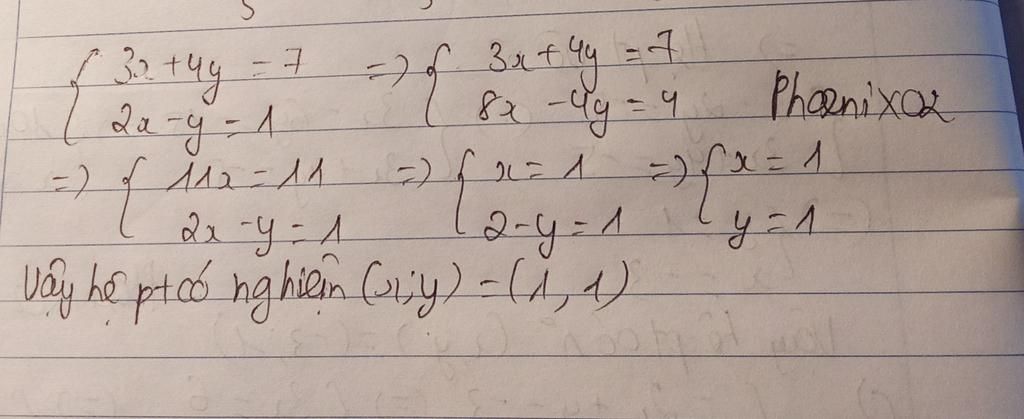 { 3x+4y = 7 => { 3x+4y = 7
{ 2x-y = 1 { 8x -4y = 4 Phoenixα
=> { 11x = 11 => { x = 1 => { x = 1
{ 2x-y = 1 { 2-y = 1 { y = 1
Vậy hệ pt có nghiệm (x;y) = (1, 1)